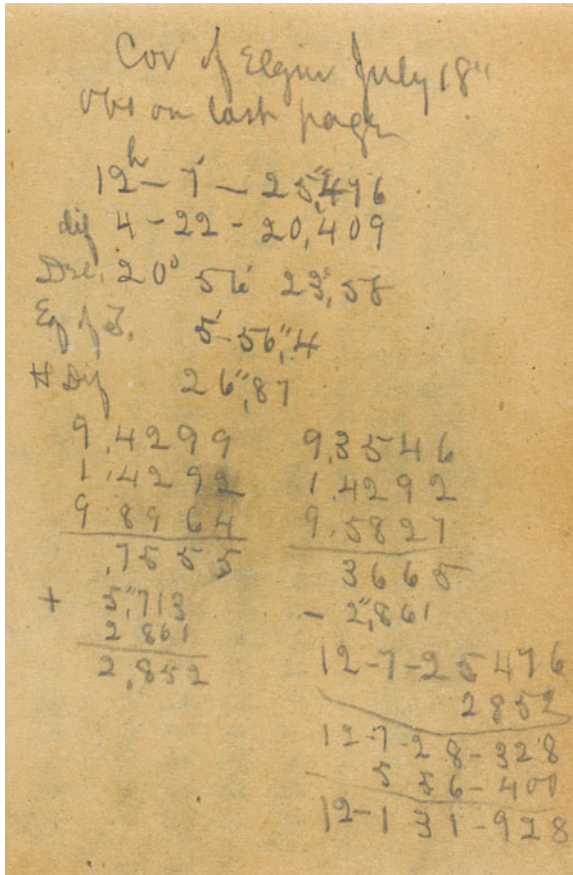 Cor of Elgin July 18"
Obs on last page
12h - 7' - 25,"476
dif 4 - 22 - 20,409
Dec. 20° 56' 23",58
Eq of T. 5'-56",4
H Dif 26",87
9.4299
1.4292
9 8964
.7555
+ 5",713
2 861
2,852
9.3546
1.4292
9.5827
3665
- 2",861
12-7-25476
2852
12-7-28-328
5 56-400
12-1 31-928